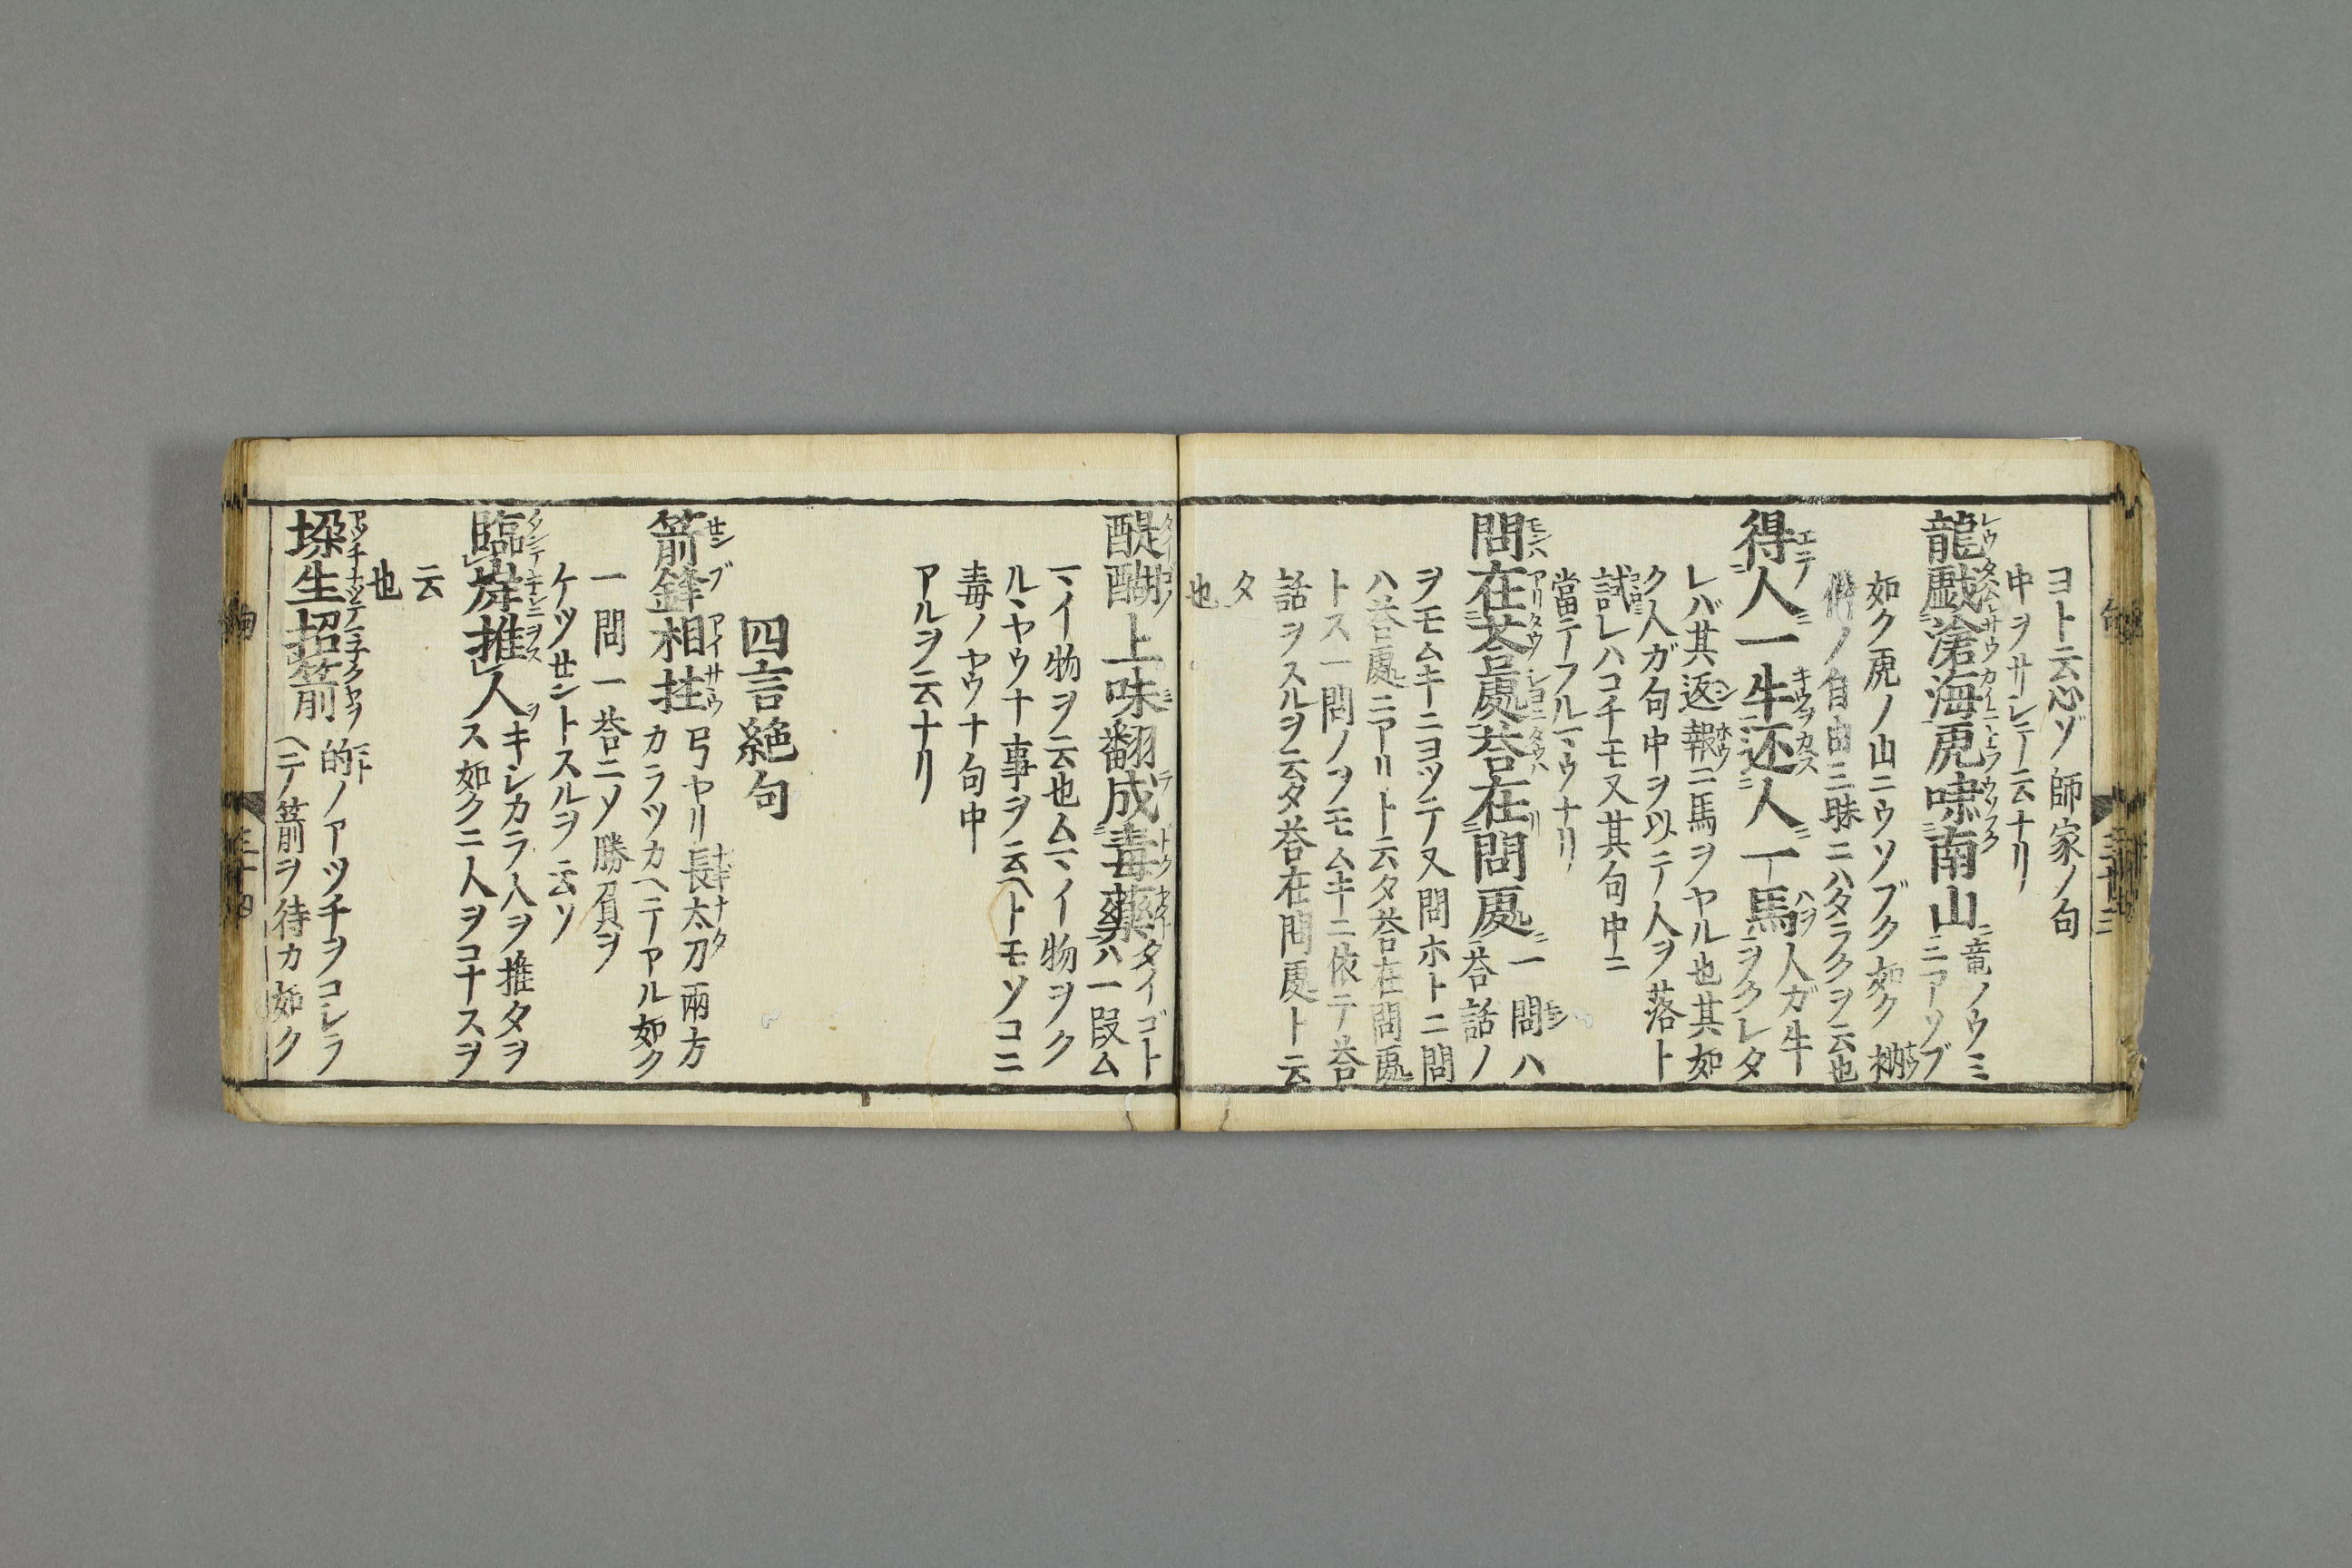 ヨト云心ゾ師家ノ句
中ヲサシテ云ナリ
龍戯滄海虎嘯南山 竜ノウミ
ニアソブ
如ク虎ノ山ニウソブク如ク衲
僧ノ自由三昧ニハタラクヲ云也
得人一牛还人一馬 人ガ牛
ヲクレタ
レバ其返報ニ馬ヲヤル也其如
ク人ガ句中ヲ以テ人ヲ落ト
試レハコチモ又其句中ニ
當テフルマウナリ
問在荅處荅在問處 一問ハ
荅話ノ
ヲモムキニヨツテ又問ホトニ問
ハ荅處ニアリト云タ荅在問處
トス一問ノヲモムキニ依テ荅
話ヲスルヲ云タ荅在問處ト云
タ
也
醍醐上味翻成毒藥 タイゴト
ハ一段ム
マイ物ヲ云也ムマイ物ヲク
ルヽヤウナ事ヲ云ヘトモソコニ
毒ノヤウナ句中
アルヲ云ナリ
四言絶句
箭鋒相拄 弓ヤリ長太刀兩方
カラツカヘテアル如ク
一問一荅ニソ勝負ヲ
ケツせントスルヲ云ソ
臨岸推人 キシカラ人ヲ推タヲ
ス如クニ人ヲコナスヲ
云
也
垜生招箭 的ノアツチヲコシラ
ヘテ箭ヲ待カ如ク
三十四